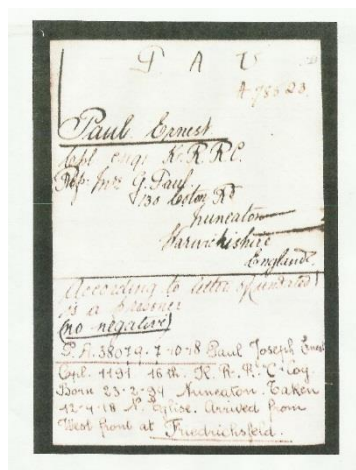 P A U
A 78623
Paul Ernest
Cpl. K.R.R.C.
Rep. Mrs G. Paul.
130 Rd
Nuneaton
Warwickshire
England.
According to letter (undated)
is a prisoner
(no negative)
P.A. 38079. 7-10-18 Paul Joseph Ernest
Cpl. 1191 16th. K. R. R. C. Coy.
Born 23-2-94 Nuneaton. Taken
12-4-18 N. Eglise. Arrived from
West front at Friedrichsfeld.